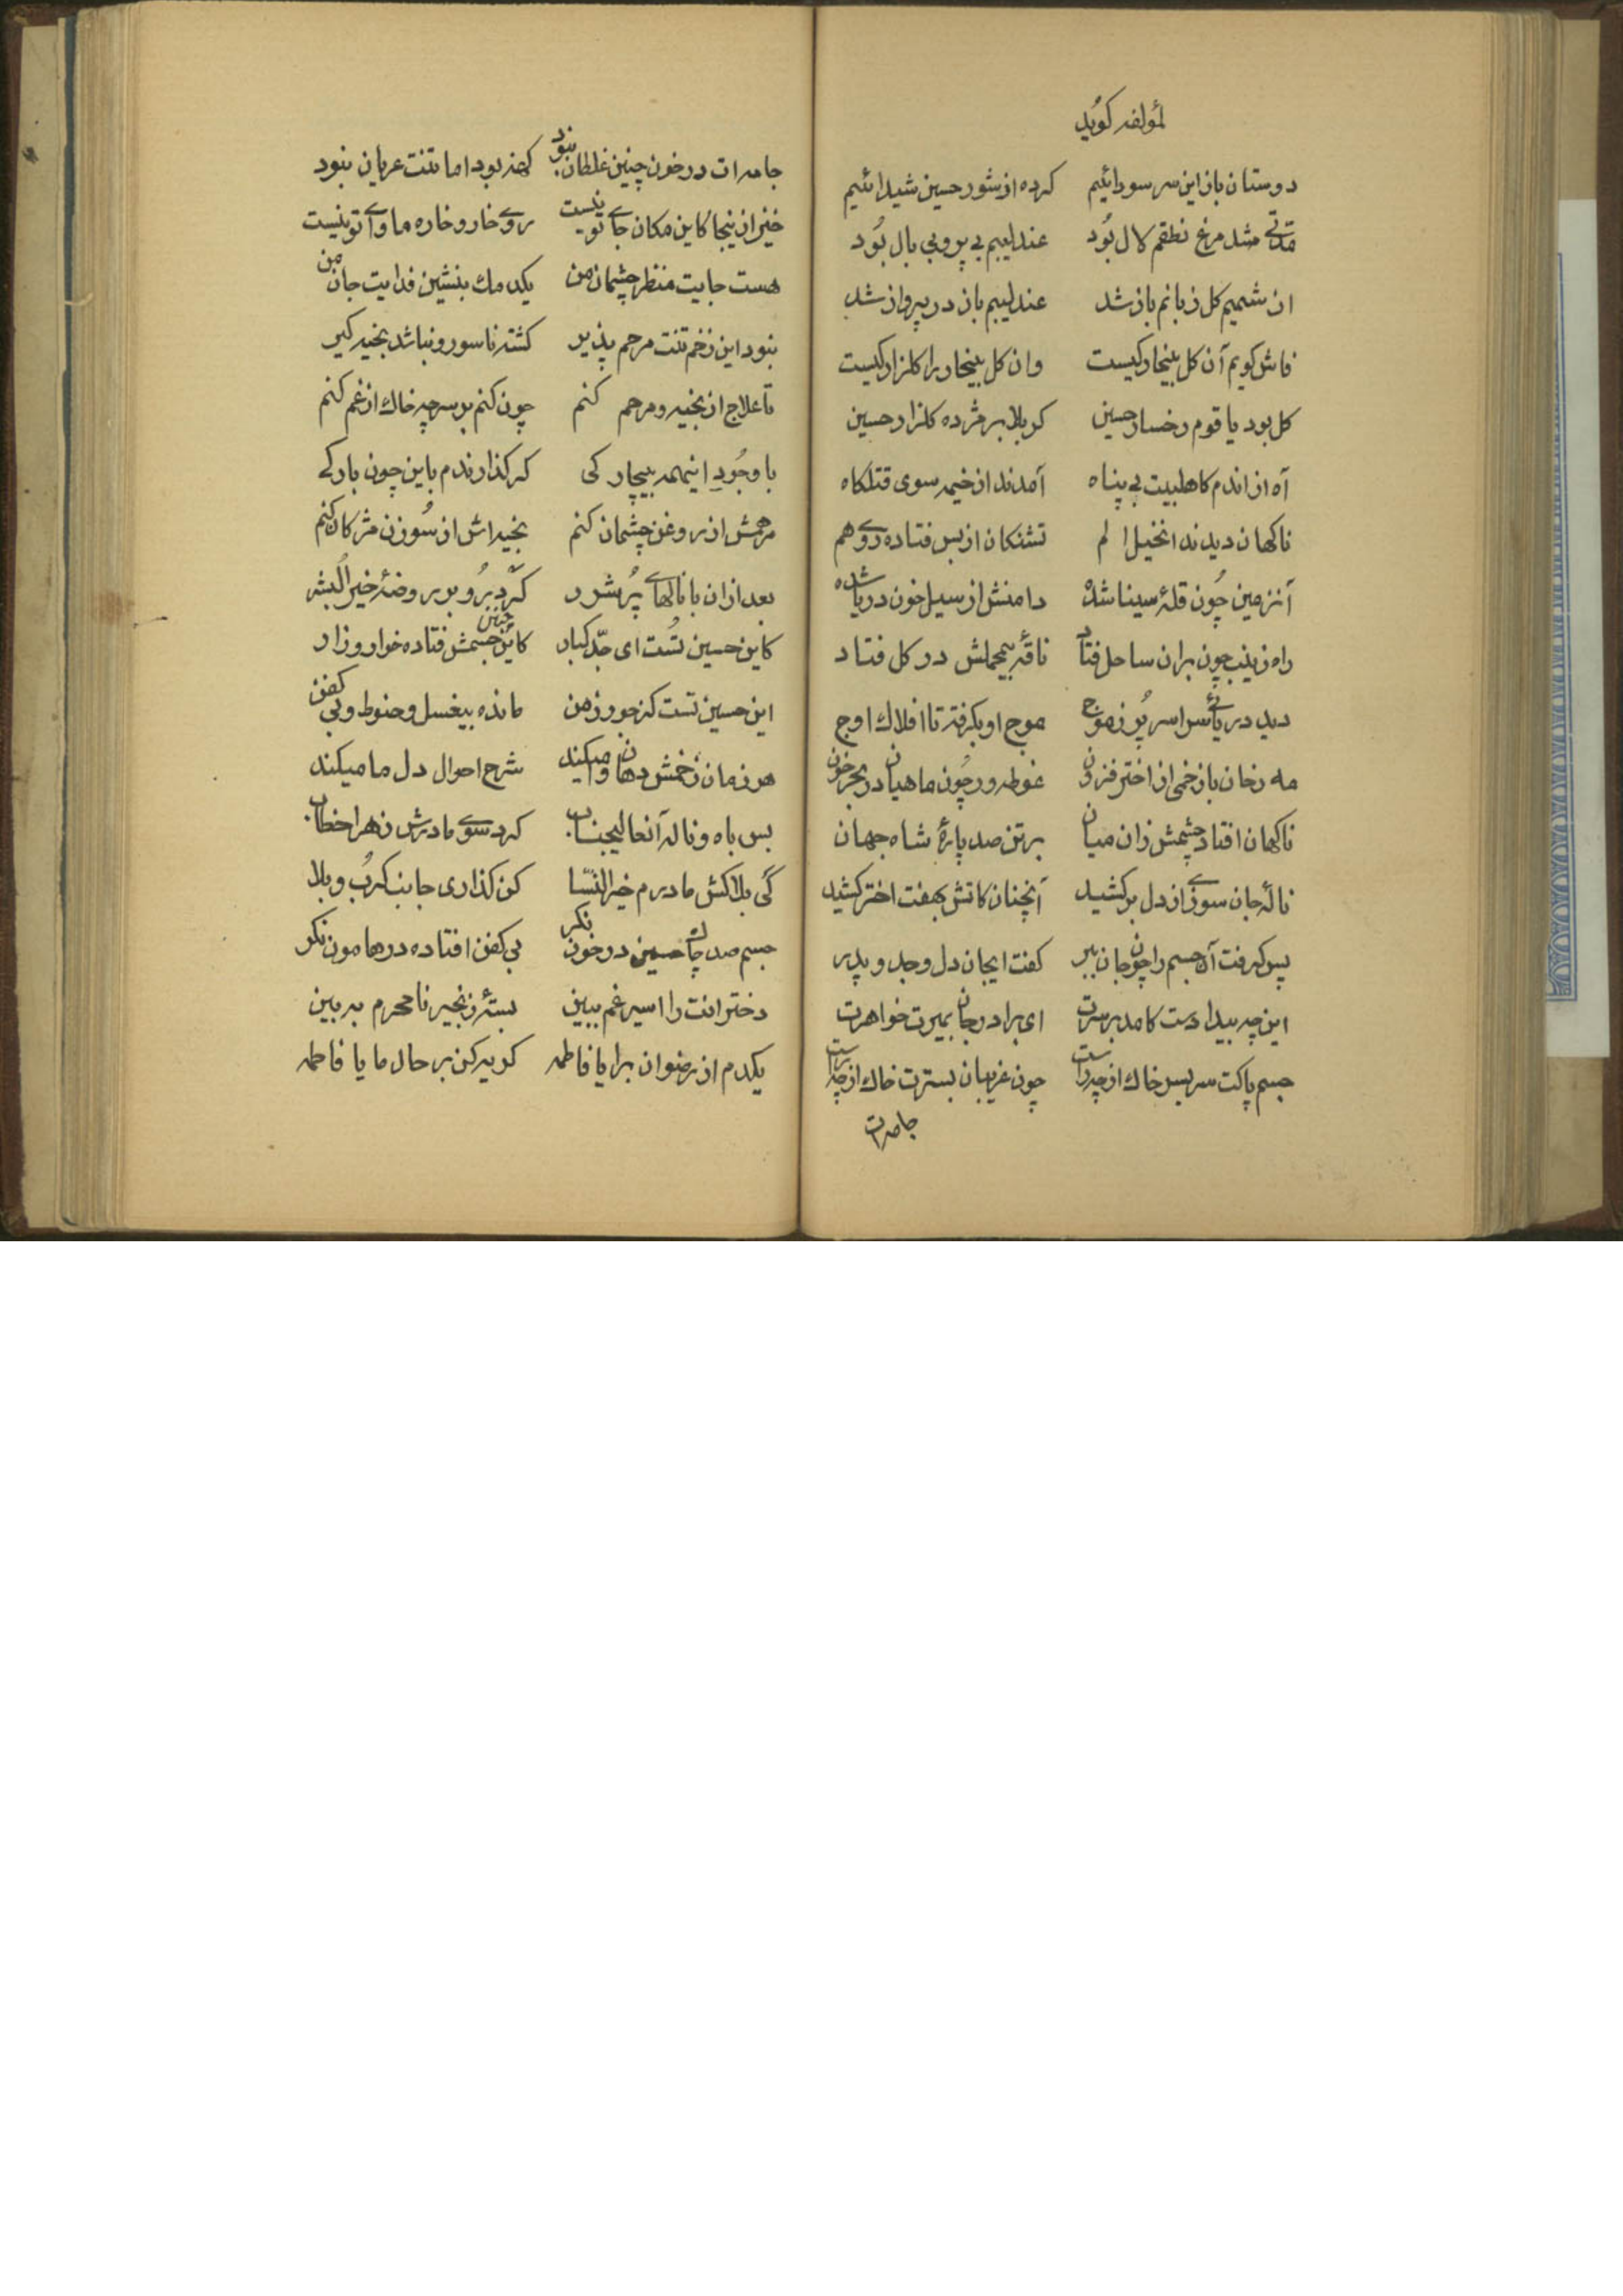 لمؤلفه کوید
دوستان باز این سر سودائیم کرده از شور حسین شیدائیم
مدتی شد مرغ نطقم لال بُود عندلیبم بی پر وبی بال بُود
از شمیم کل زبانم باز شد عندلیبم باز در پرواز شد
فاش کویم آن کل بیخار کیست وان کل بیخار را کلزار کیست
کل بود یا قوم رخسار حسین کربلا پژمرده کلزار حسین
آه از اندم کاهلبیت بی پناه آمدند از خیمه سوی قتلکاه
ناکهان دیدند انخیل الم تشنکان از بس فتاده روی هم
آنزمین چُون قلهٔ سینا شده دامنش از سیل خون دریا شده
راه زینب چون بران ساحل فتاد ناقهٔ بیمحملش در کل فتاد
دید دریائی سراسر پُر زموج موج او بکرفته تا افلاک اوج
مه رخان با زخمی از اختر فزون غوطه ور چُون ماهیان در بحر خون
ناکهان افتاد چشمش زان میان برتن صد پارهٔ شاه جهان
نالهٔ جان سوزی از دل برکشید آنچنان کاتش بهفت اختر کشید
پس کرفت آن جسم را چون جان ببر کفت ایجان دل وجد و پدر
این چه بیدادست کامد برسرت ای برادر جان بمیرت خواهرت
جسم پاکت سربسر خاک از چه راست چون غریبان بسترت خاک از چه راست
جامه ات
جامه ات در خون چنین غلطان نبود کهنه بود اما تنت عریان نبود
خیز از اینجا کاین مکان جای تو نیست روی خار و خاره ماوای تو نیست
هست جایت منظر چشمان من یکدمک بنشین فدایت جان من
نبود این زخم تنت مرحم پذیر کشته ناسور و نباشد بخیه کیر
تا علاج از بخیه و مرحم کنم چون کنم بر سر چه خاک از غم کنم
با وجُودِ اینهمه بیچارکی که کذارندم باین چون بارکی
مرهمش از روغن چشمان کنم بخیه اش از سُوزن مژکان کنم
بعد ازان با نالهای پُر شرر کرد رُو بر روضهٔ خیر البشر
کاین حسین تُست ای جدّ کبار کاین چنین جسمش فتاده خوار و زار
این حسین تست کز جور زمن مانده بیغسل و حنوط و بی کفن
هر زمان زخمش دهان وامیکند شرح احوال دل ما میکند
بس باه و ناله آنعالیجناب کرد سوی مادرش زهرا خطاب
کی بلاکش مادرم خیر النسّا کن کذاری جانب کربُ وبلا
جسم صد چاک حسین در خون نکر بی کفن افتاده در هامون نکر
دخترانت را اسیر غم ببین بستهٔ زنجیر نامحرم ببین
یکدم از رضوان برا یا فاطمه کریه کن بر حال ما یا فاطمه